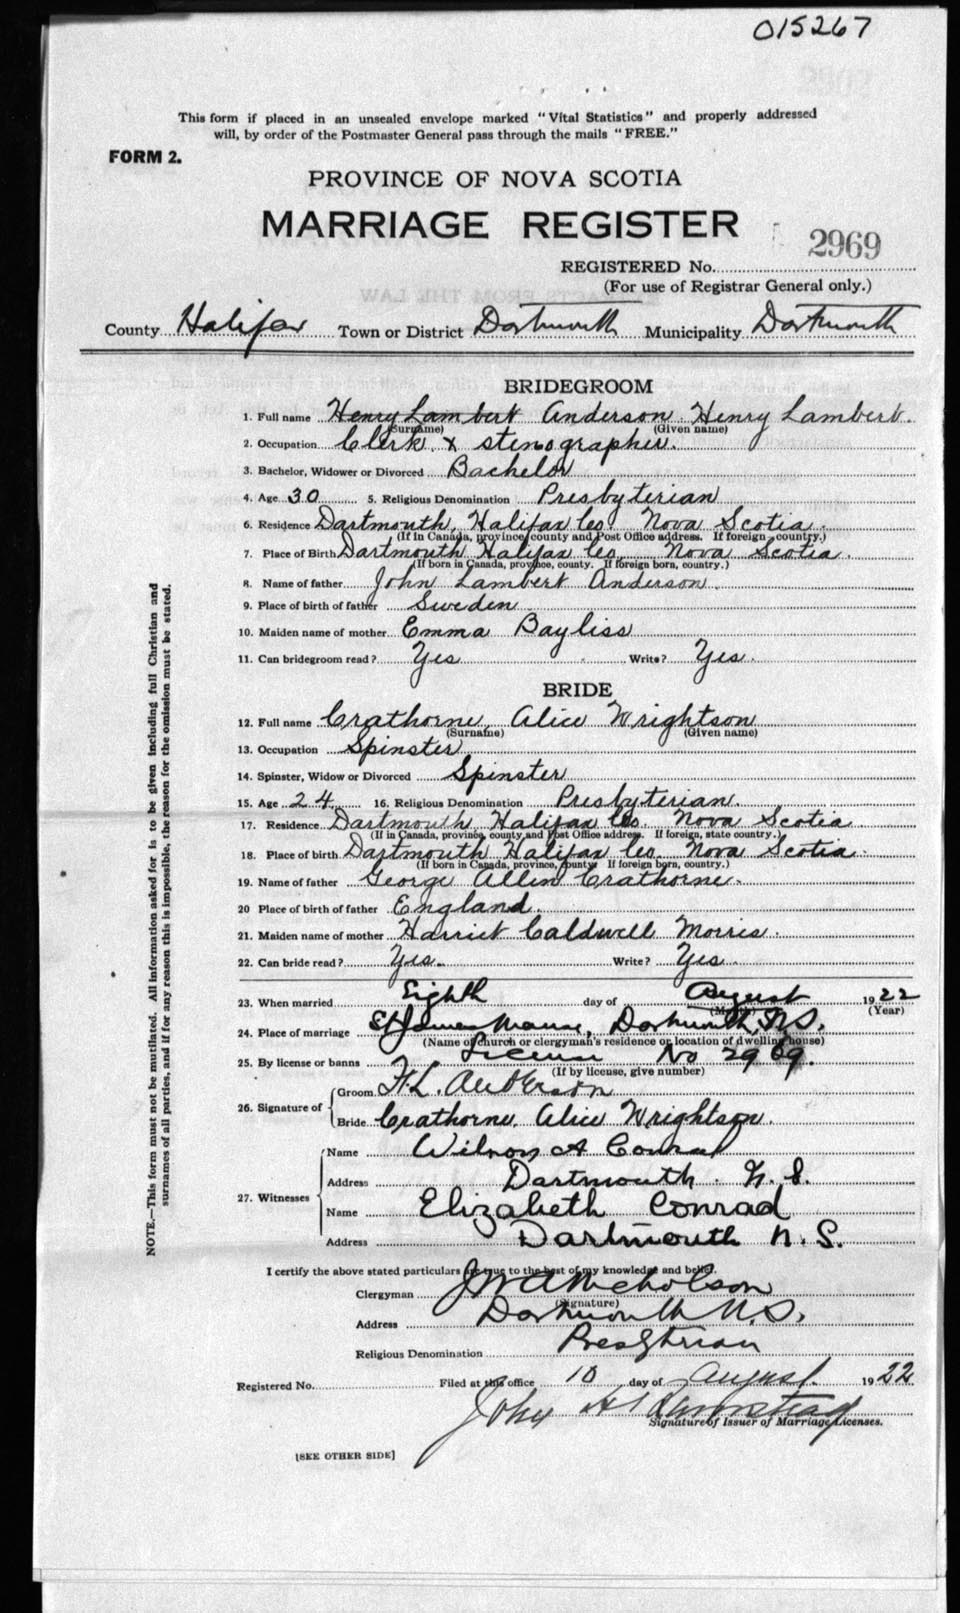 015267
This form if placed in an unsealed envelope marked "Vital Statistics" and properly addressed
will, by order of the Postmaster General pass through the mails "FREE."
FORM 2.
PROVINCE OF NOVA SCOTIA
MARRIAGE REGISTER
2969
REGISTERED No.
(For use of Registrar General only.)
County Halifax Town or District Dartmouth Municipality Dartmouth
BRIDEGROOM
1. Full name Henry Lambert Anderson Henry Lambert.
(Surname) (Given name)
2. Occupation Clerk & stenographer.
3. Bachelor, Widower or Divorced Bachelor
4. Age 30 5. Religious Denomination Presbyterian
6. Residence Dartmouth, Halifax Co. Nova Scotia.
(If in Canada, province, county and Post Office address. If foreign, country.)
7. Place of Birth Dartmouth Halifax Co. Nova Scotia.
(If born in Canada, province, county. If foreign born, country.)
8. Name of father John Lambert Anderson.
9. Place of birth of father Sweden
10. Maiden name of mother Emma Bayliss
11. Can bridegroom read? Yes Write? Yes.
BRIDE
12. Full name Crathorne, Alice Wrightson
(Surname) (Given name)
13. Occupation Spinster
14. Spinster, Widow or Divorced Spinster
15. Age 24 16. Religious Denomination Presbyterian.
17. Residence Dartmouth Halifax Co. Nova Scotia
(If in Canada, province, county and Post Office address. If foreign, state country.)
18. Place of birth Dartmouth Halifax Co. Nova Scotia.
(If born in Canada, province, county. If foreign born, country.)
19. Name of father George Allen Crathorne.
20 Place of birth of father England.
21. Maiden name of mother Harriet Caldwell Morris.
22. Can bride read? Yes. Write? Yes.
23. When married Eighth day of August 1922
(Month) (Year)
24. Place of marriage St James Manse, Dartmouth, N.S.
(Name of church or clergyman's residence or location of dwelling house)
25. By license or banns License No 2969.
(If by license, give number)
26. Signature of
Groom H. L. Anderson
Bride Crathorne, Alice Wrightson.
27. Witnesses
Name A Conrad
Address Dartmouth. N. S.
Name Elizabeth Conrad
Address Dartmouth N. S.
I certify the above stated particulars are true to the best of my knowledge and belief.
Clergyman Nicholson
(Signature)
Address Dartmouth N.S.
Religious Denomination Presbytrian
Registered No. Filed at this office 10 day of August. 1922
John
Signature of Issuer of Marriage Licenses.
[SEE OTHER SIDE]
NOTE.—This form must not be mutilated. All information asked for is to be given including full Christian and
surnames of all parties, and if for any reason this is impossible, the reason for the omission must be stated.